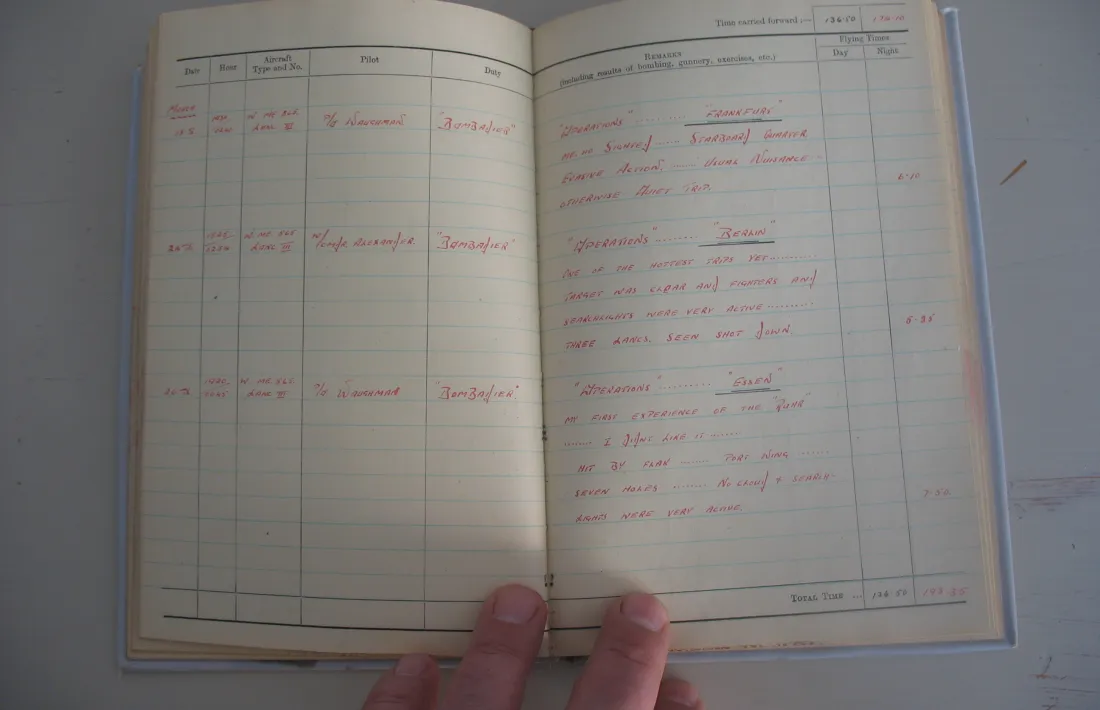 Time carried forward :— 136·50 170·10
Date Hour Aircraft Type and No. Pilot Duty
REMARKS
(including results of bombing, gunnery, exercises, etc.)
Flying Times
Day Night
MARCH
LANC III P/O WAUGHMAN "BOMBADIER"
"OPERATIONS" .......... "FRANKFURT"
SIGHTED ...... STARBOARD QUARTER
EVASIVE ACTION, ...... USUAL NUISANCE
OTHERWISE QUIET TRIP.
6·10
LANC III W/CMDR ALEXANDER. "BOMBADIER"
"OPERATIONS" ........ "BERLIN"
ONE OF THE HOTTEST TRIPS YET..........
TARGET WAS CLEAR AND FIGHTERS AND
SEARCHLIGHTS WERE VERY ACTIVE ..........
THREE LANCS. SEEN SHOT DOWN.
LANC III P/O WAUGHMAN "BOMBADIER"
"OPERATIONS" .......... "ESSEN"
MY FIRST EXPERIENCE OF THE "RUHR"
....... I DIDNT LIKE IT .......
HIT BY FLAK ....... PORT WING ......
SEVEN HOLES ........ NO CLOUD & SEARCH-
LIGHTS WERE VERY ACTIVE.
7·50
TOTAL TIME ... 136·50